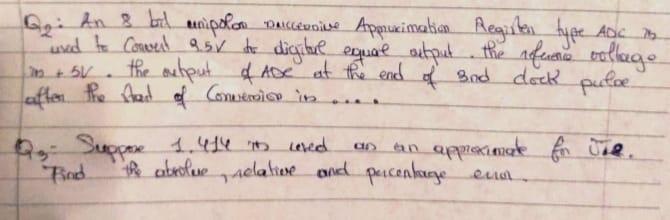 Q2: An 8 bit unipolar successive Approximation Register type ADC is
used to Convert 3.5V to digital equal output. the reference voltage
is +5V. the output of ADC at the end of 3rd clock pulse
after the start of Conversion is ....
Q3:- Suppose 1.414 is used as an approximate for √2.
Find the absolue, relative and percentage error.